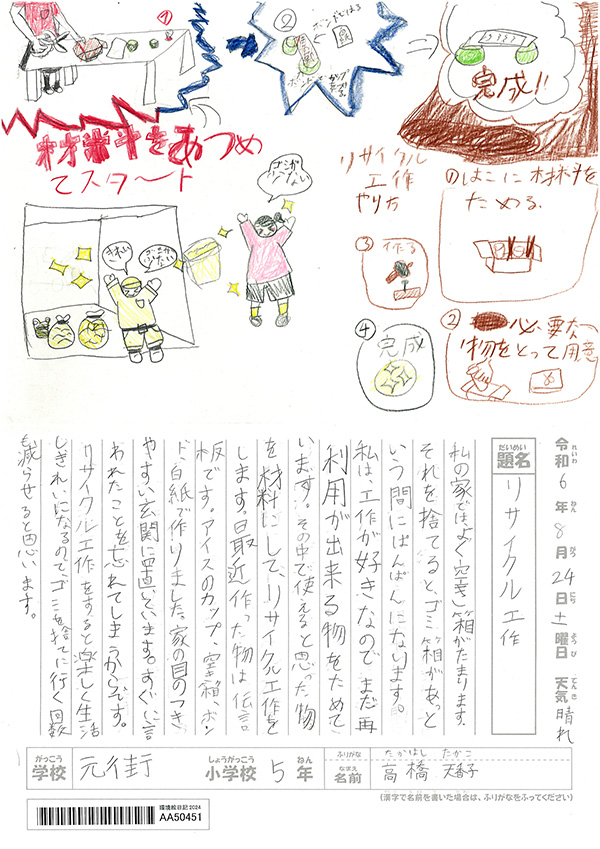 ①
②
ボンドではる
ボンドで
カップをはる
完成!!
材料をあつめ
てスタート
ゴミが
少ない
きれい
ゴミが
少ない
リサイクル
工作
やり方
①
のはこに材料を
ためる
②
必要な
物をとって用意
③
作る
④
完成
令和6年8月24日土曜日 天気晴れ
れいわ ねん がつ にち ようび てんき
だいめい
題名
リサイクル工作
私の家ではよく空き箱がたまります。
それを捨てると、ゴミ箱があっと
いう間にぱんぱんになります。
私は、工作が好きなのでまだ再
利用が出来る物をためて
います。その中で使えると思った物
を材料にして、リサイクル工作を
します。最近作った物は伝言
板です。アイスのカップ、空き箱、ボン
ド、白紙で作りました。家の目のつき
やすい玄関に置いています。すぐに言
われたことを忘れてしまうからです。
リサイクル工作をすると楽しく生活
しきれいになるので、ゴミを捨てに行く回数
も減らせると思います。
がっこう
学校
元街
しょうがっこう
小学校
5
ねん
年
ふりがな
たかはし たかこ
なまえ
名前
高橋
(漢字で名前を書いた場合は、ふりがなをふってください)
環境絵日記2024
AA50451